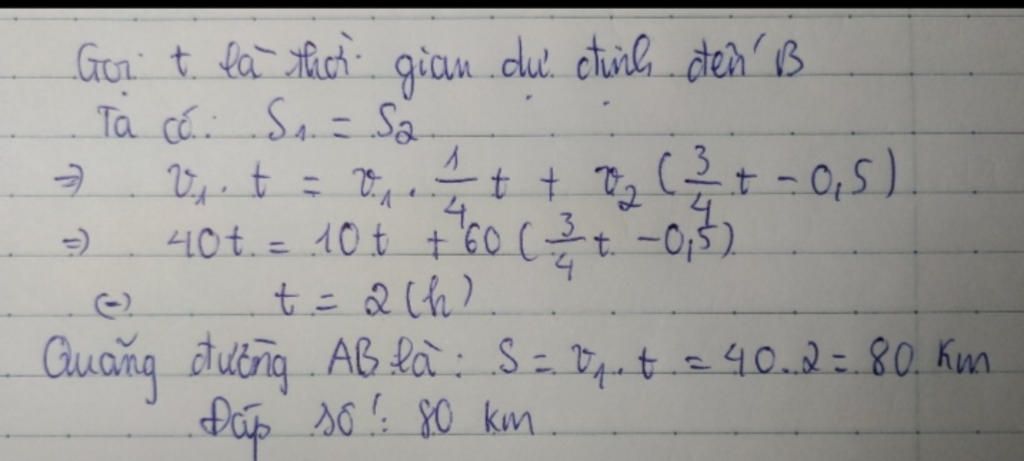 Gọi t là thời gian dự định đến B
Ta có: S₁ = S₂
⇒ v₁. t = v₁. 1/4 t + v₂ (3/4 t - 0,5)
⇒ 40t = 10t + 60 (3/4 t - 0,5)
(=) t = 2(h)
Quãng đường AB là: S = v₁. t = 40.2 = 80 km
Đáp số: 80 km